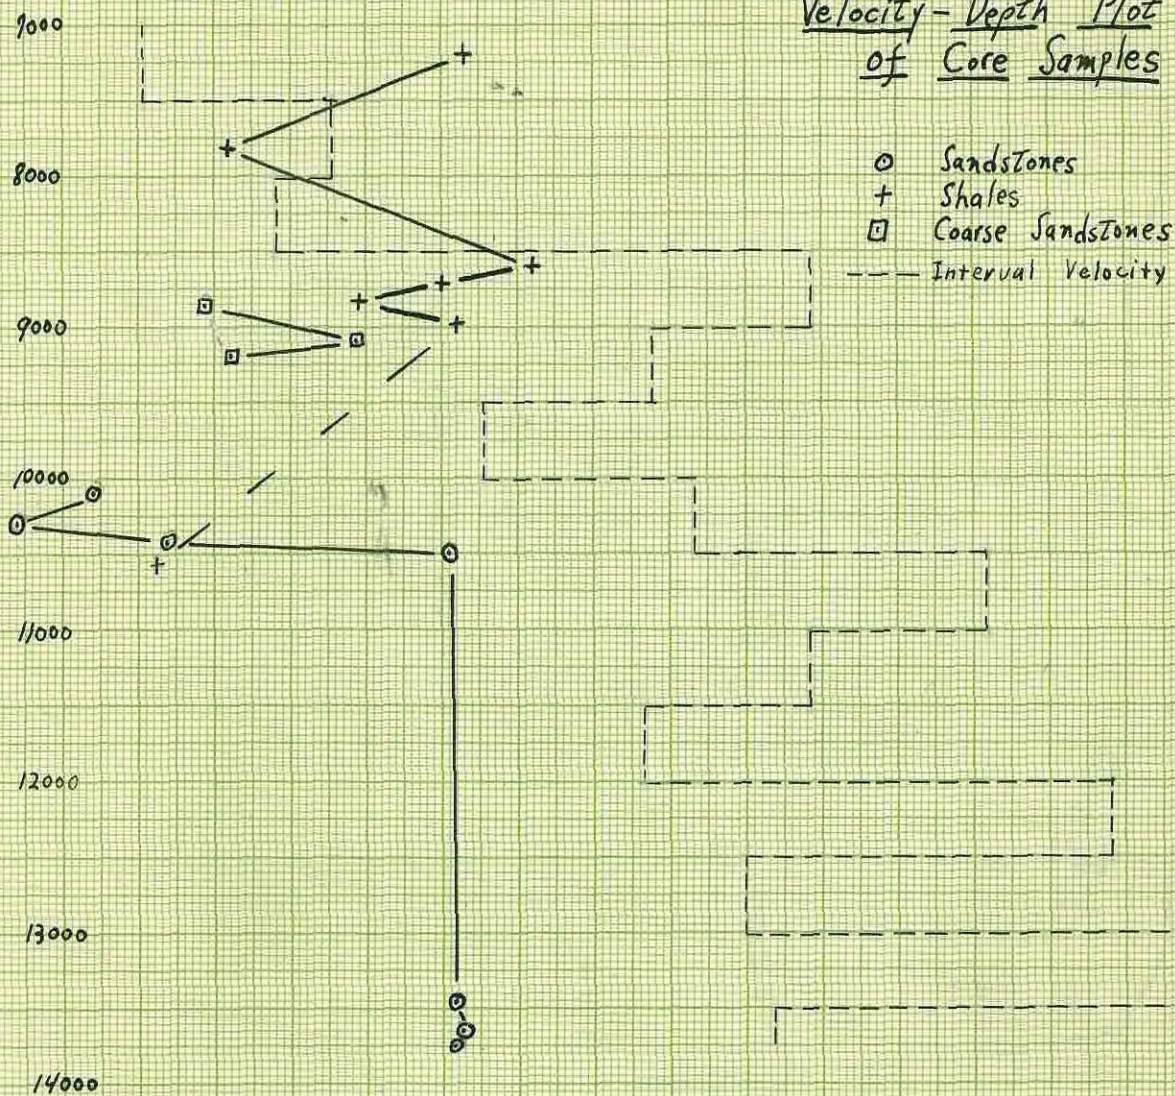 Velocity - Depth Plot
of Core Samples
7000
Sandstones
8000
Shales
Coarse Sandstones
Interval Velocity
9000
10000
11000
12000
13000
14000